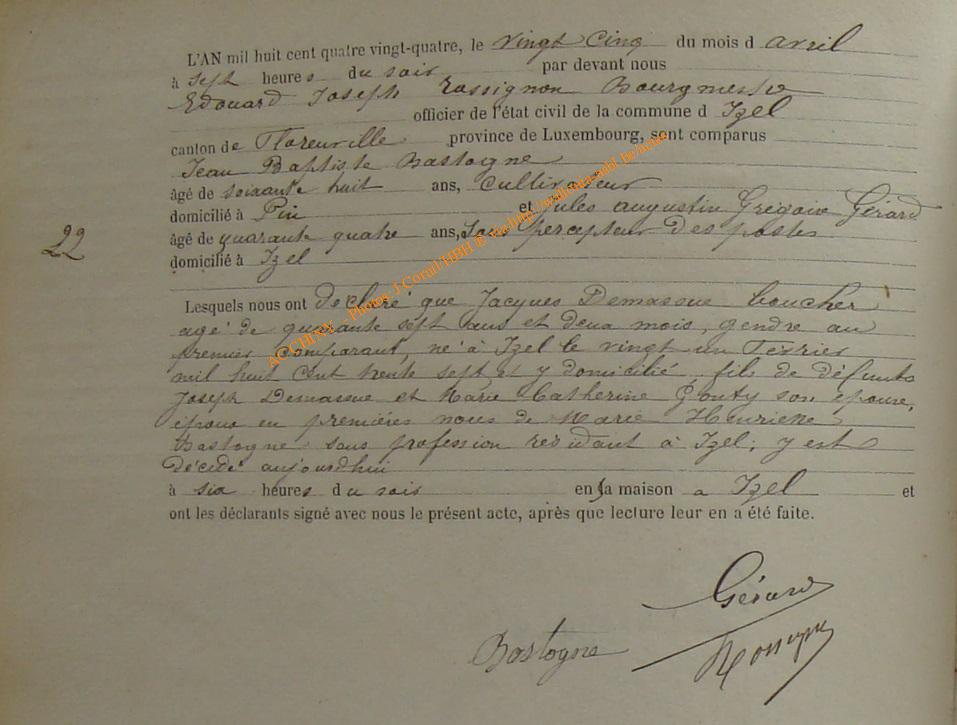 L'AN mil huit cent quatre vingt-quatre, le vingt cinq du mois d avril
à sept heures du soir par devant nous
Edouard Joseph Rossignon Bourgmestre
officier de l'état civil de la commune d Izel
canton de Florenville province de Luxembourg, sont comparus
Jean Baptiste Bastogne
âgé de soixante huit ans, cultivateur
domicilié à Pin et Jules augustin Grégoire Gérard
22
âgé de quarante quatre ans, Sous percepteur des postes
domicilié à Izel
Lesquels nous ont déclaré que Jacques Demasque boucher
agé de quarante sept ans et deux mois, gendre au
premier comparant, né à Izel le vingt un Février
mil huit cent trente sept et y domicilié, fils de défunts
Joseph Demasque et Marie Catherine Gonty son épouse,
époux en premières noces de Marie Henriette
Bastogne sans profession résidant à Izel; y est
décédé aujourdhui
à six heures du soir en sa maison a Izel et
ont les déclarants signé avec nous le présent acte, après que lecture leur en a été faite.
Gérard
Bastogne
ACCHENV - Photos J Corail-HBH ®